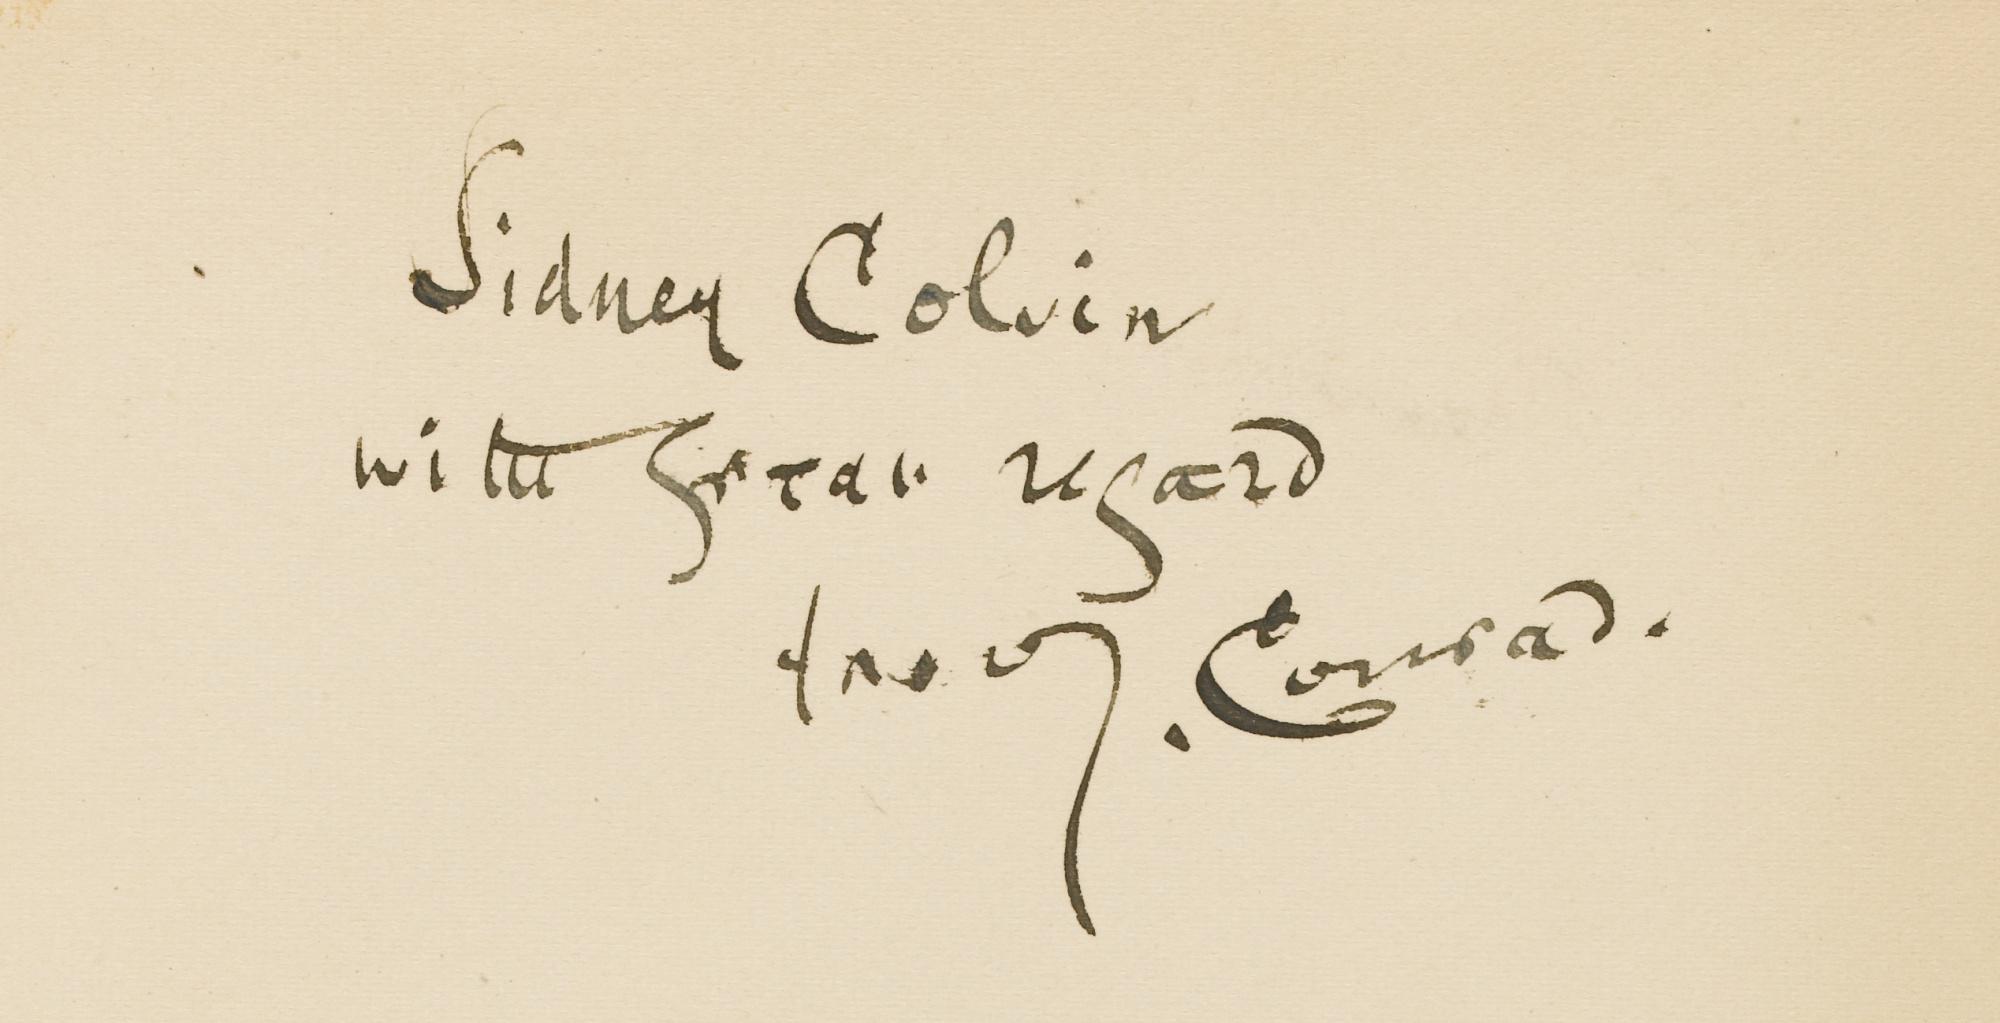 Sidney Colvin
with great regard
from J. Conrad.